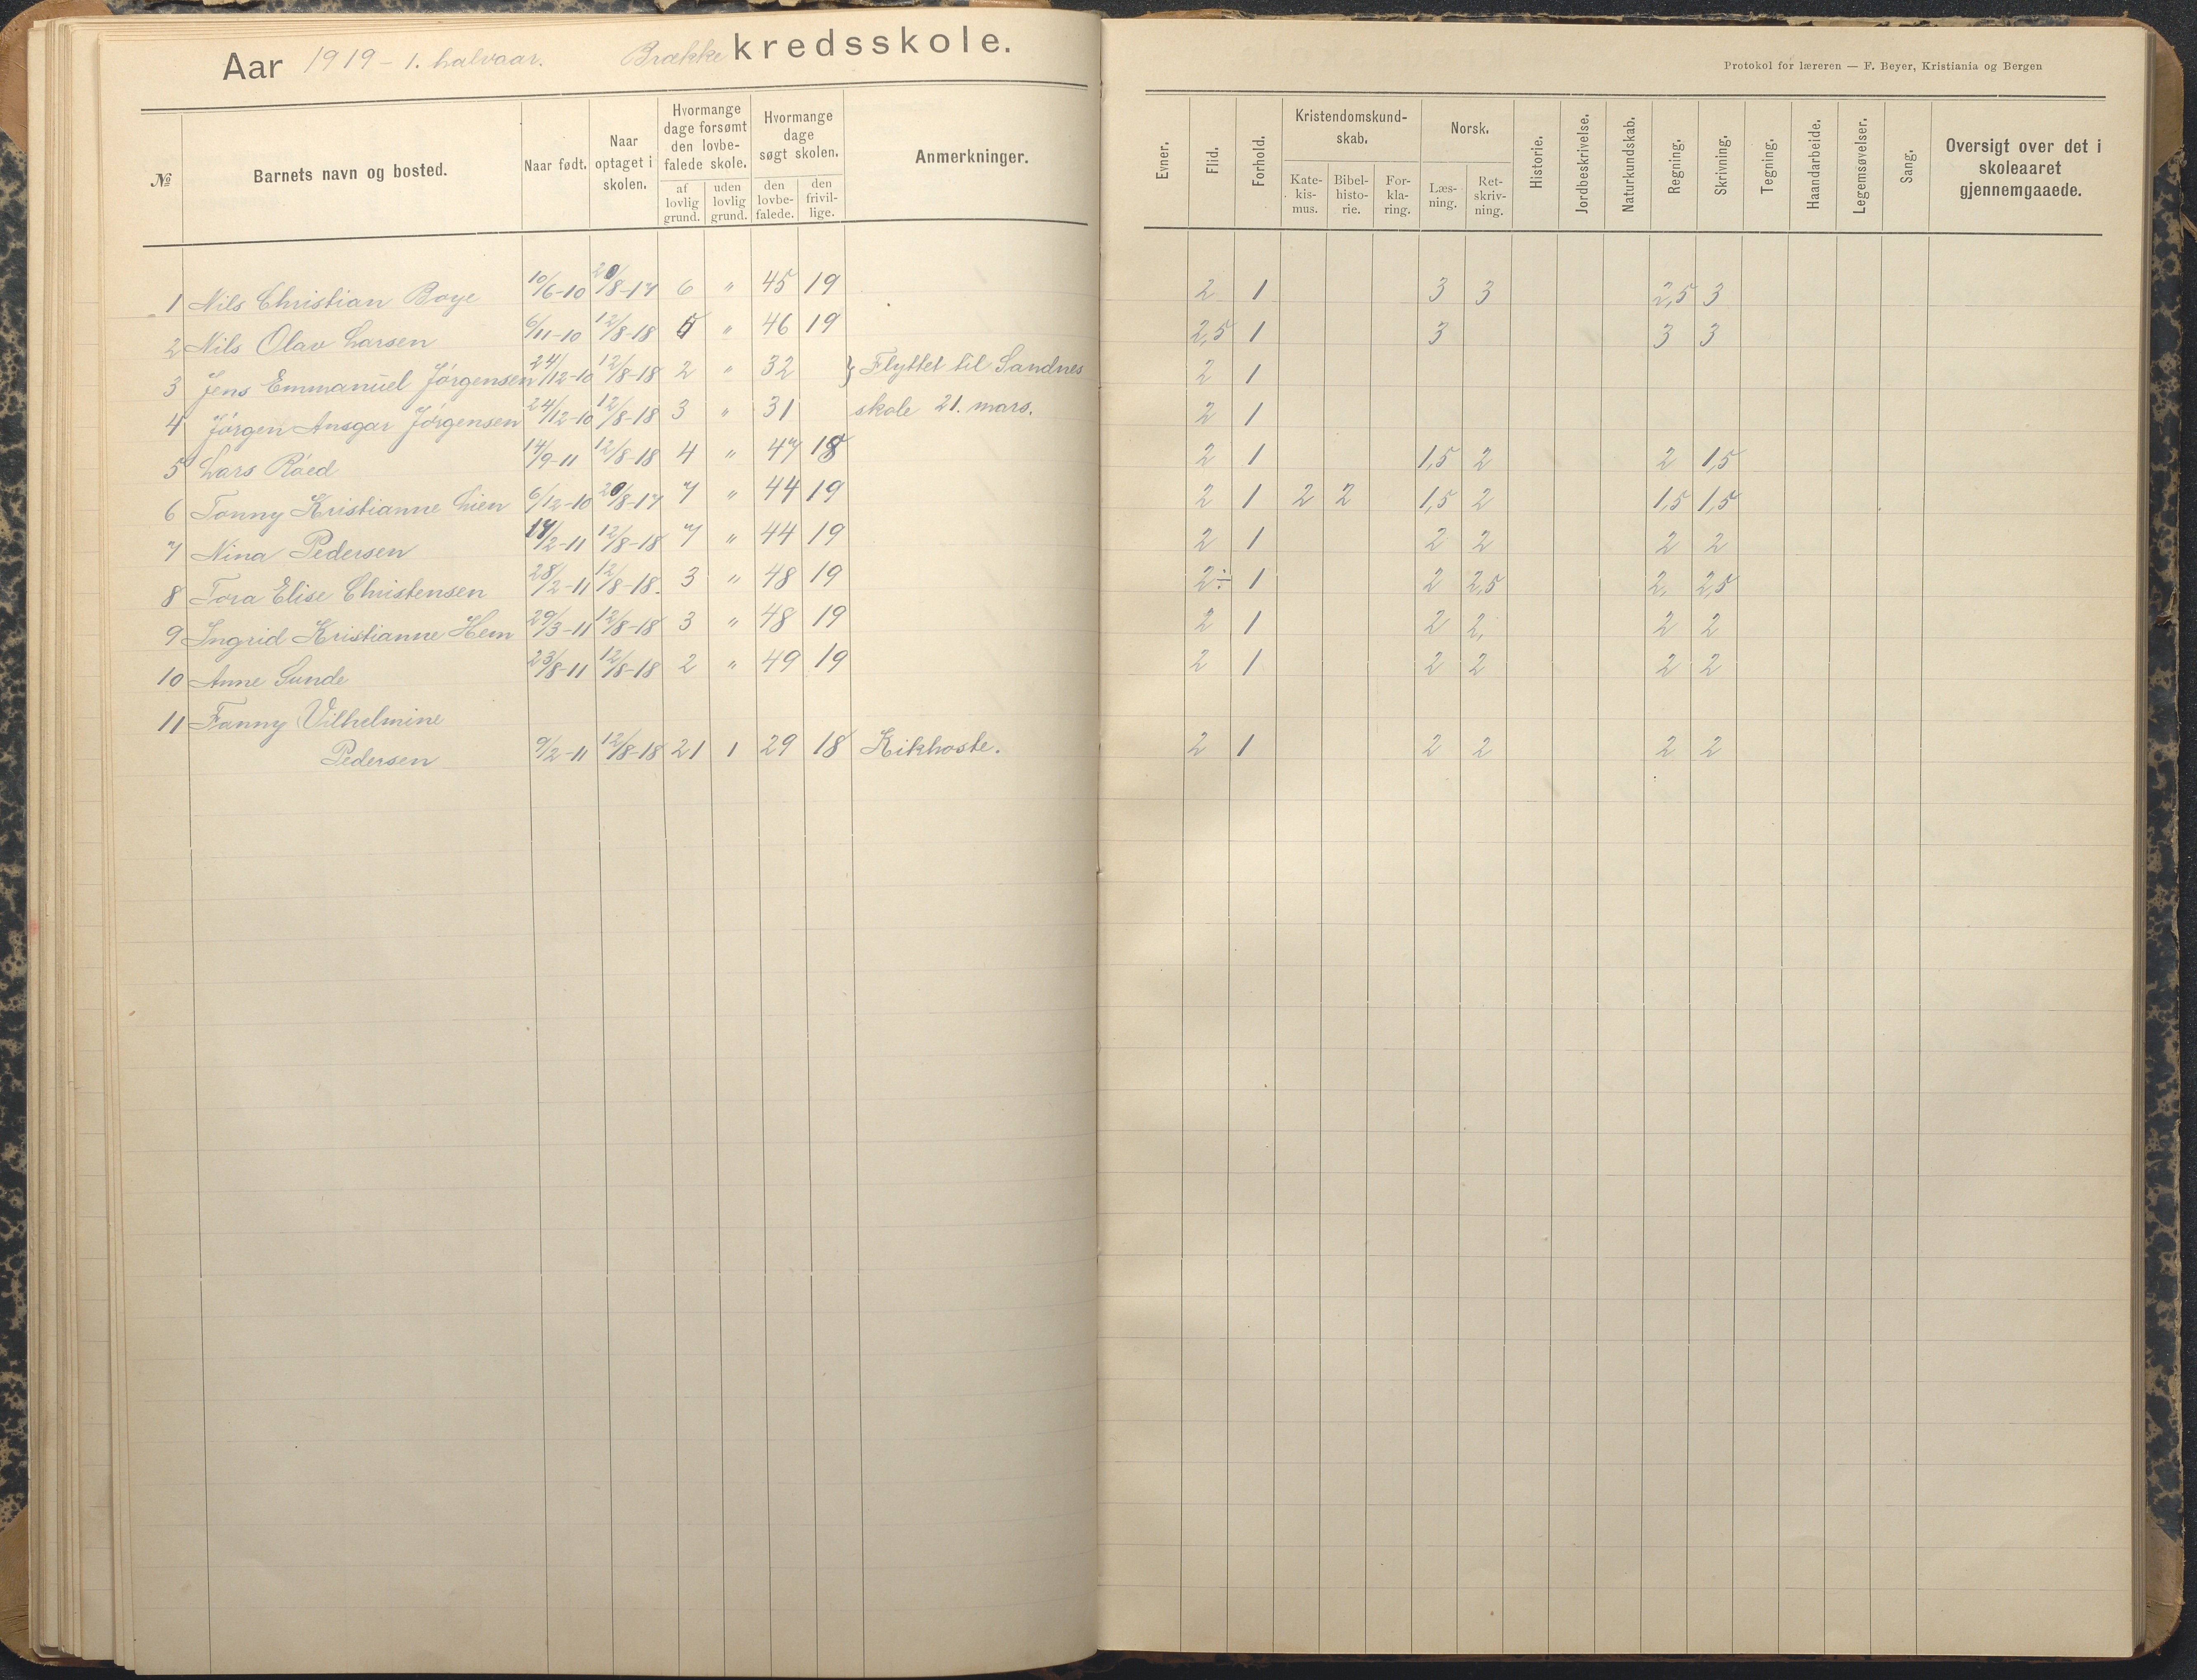 Aar 1919 - 1. halvaar. Brække kredsskole.
Protokol for læreren — F. Beyer, Kristiania og Bergen
№ Barnets navn og bosted. Naar født. Naar optaget i skolen. Hvormange dage forsømt den lovbefalede skole. af lovlig grund. uden lovlig grund. Hvormange dage søgt skolen. den lovbefalede. den frivillige. Anmerkninger. Evner. Flid. Forhold. Kristendomskundskab. Katekismus. Bibelhistorie. Forklaring. Norsk. Læsning. Retskrivning. Historie. Jordbeskrivelse. Naturkundskab. Regning. Skrivning. Tegning. Haandarbeide. Legemsøvelser. Sang. Oversigt over det i skoleaaret gjennemgaaede.
1 Nils Christian Boye 10/6-10 20/8-17 6 " 45 19 2 1 3 3 2,5 3
2 Nils Olav Larsen 6/11-10 12/8-18 5 " 46 19 2,5 1 3 3 3
3 Jens Emmanuel Jörgensen 24/12-10 12/8-18 2 " 32 } Flyttet til Sandnes 2 1
4 Jörgen Ansgar Jörgensen 24/12-10 12/8-18 3 " 31 skole 21. mars. 2 1
5 Lars Röed 14/9-11 12/8-18 4 " 47 18 2 1 1,5 2 2 1,5
6 Tonny Kristianne Lien 6/12-10 20/8-17 7 " 44 19 2 1 2 2 1,5 2 1,5 1,5
7 Nina Pedersen 17/2-11 12/8-18 7 " 44 19 2 1 2 2 2 2
8 Tora Elise Christensen 28/2-11 12/8-18. 3 " 48 19 2÷ 1 2 2,5 2, 2,5
9 Ingrid Kristianne Hem 29/3-11 12/8-18 3 " 48 19 2 1 2 2, 2 2
10 Anne Sunde 23/8-11 12/8-18 2 " 49 19 2 1 2 2 2 2
11 Fanny Vilhelmine
Pedersen 9/2-11 12/8-18 21 1 29 18 Kikhoste. 2 1 2 2 2 2